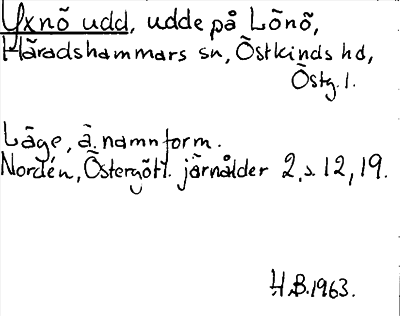 Yxnö udd, udde på Lönö,
Häradshammars sn, Östkinds hd,
Östg. l.
Läge, ä. namnform.
Nordén, Östergötl. järnålder 2, s. 12, 19.
H.B. 1963.